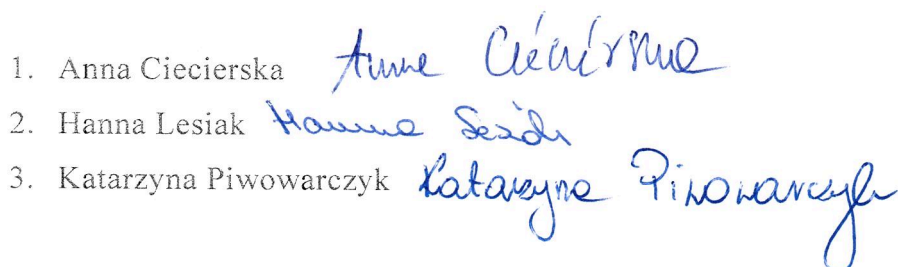 1. Anna Ciecierska Anna Ciecierska
2. Hanna Lesiak Hanna Lesiak
3. Katarzyna Piwowarczyk Katarzyna Piwowarczyk